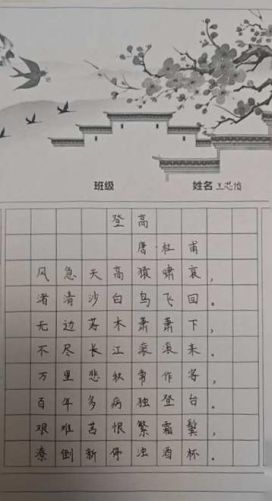 班级 姓名 王芯怡
登高
唐·杜甫
风急天高猿啸哀，
渚清沙白鸟飞回。
无边落木萧萧下，
不尽长江滚滚来。
万里悲秋常作客，
百年多病独登台。
艰难苦恨繁霜鬓，
潦倒新停浊酒杯。